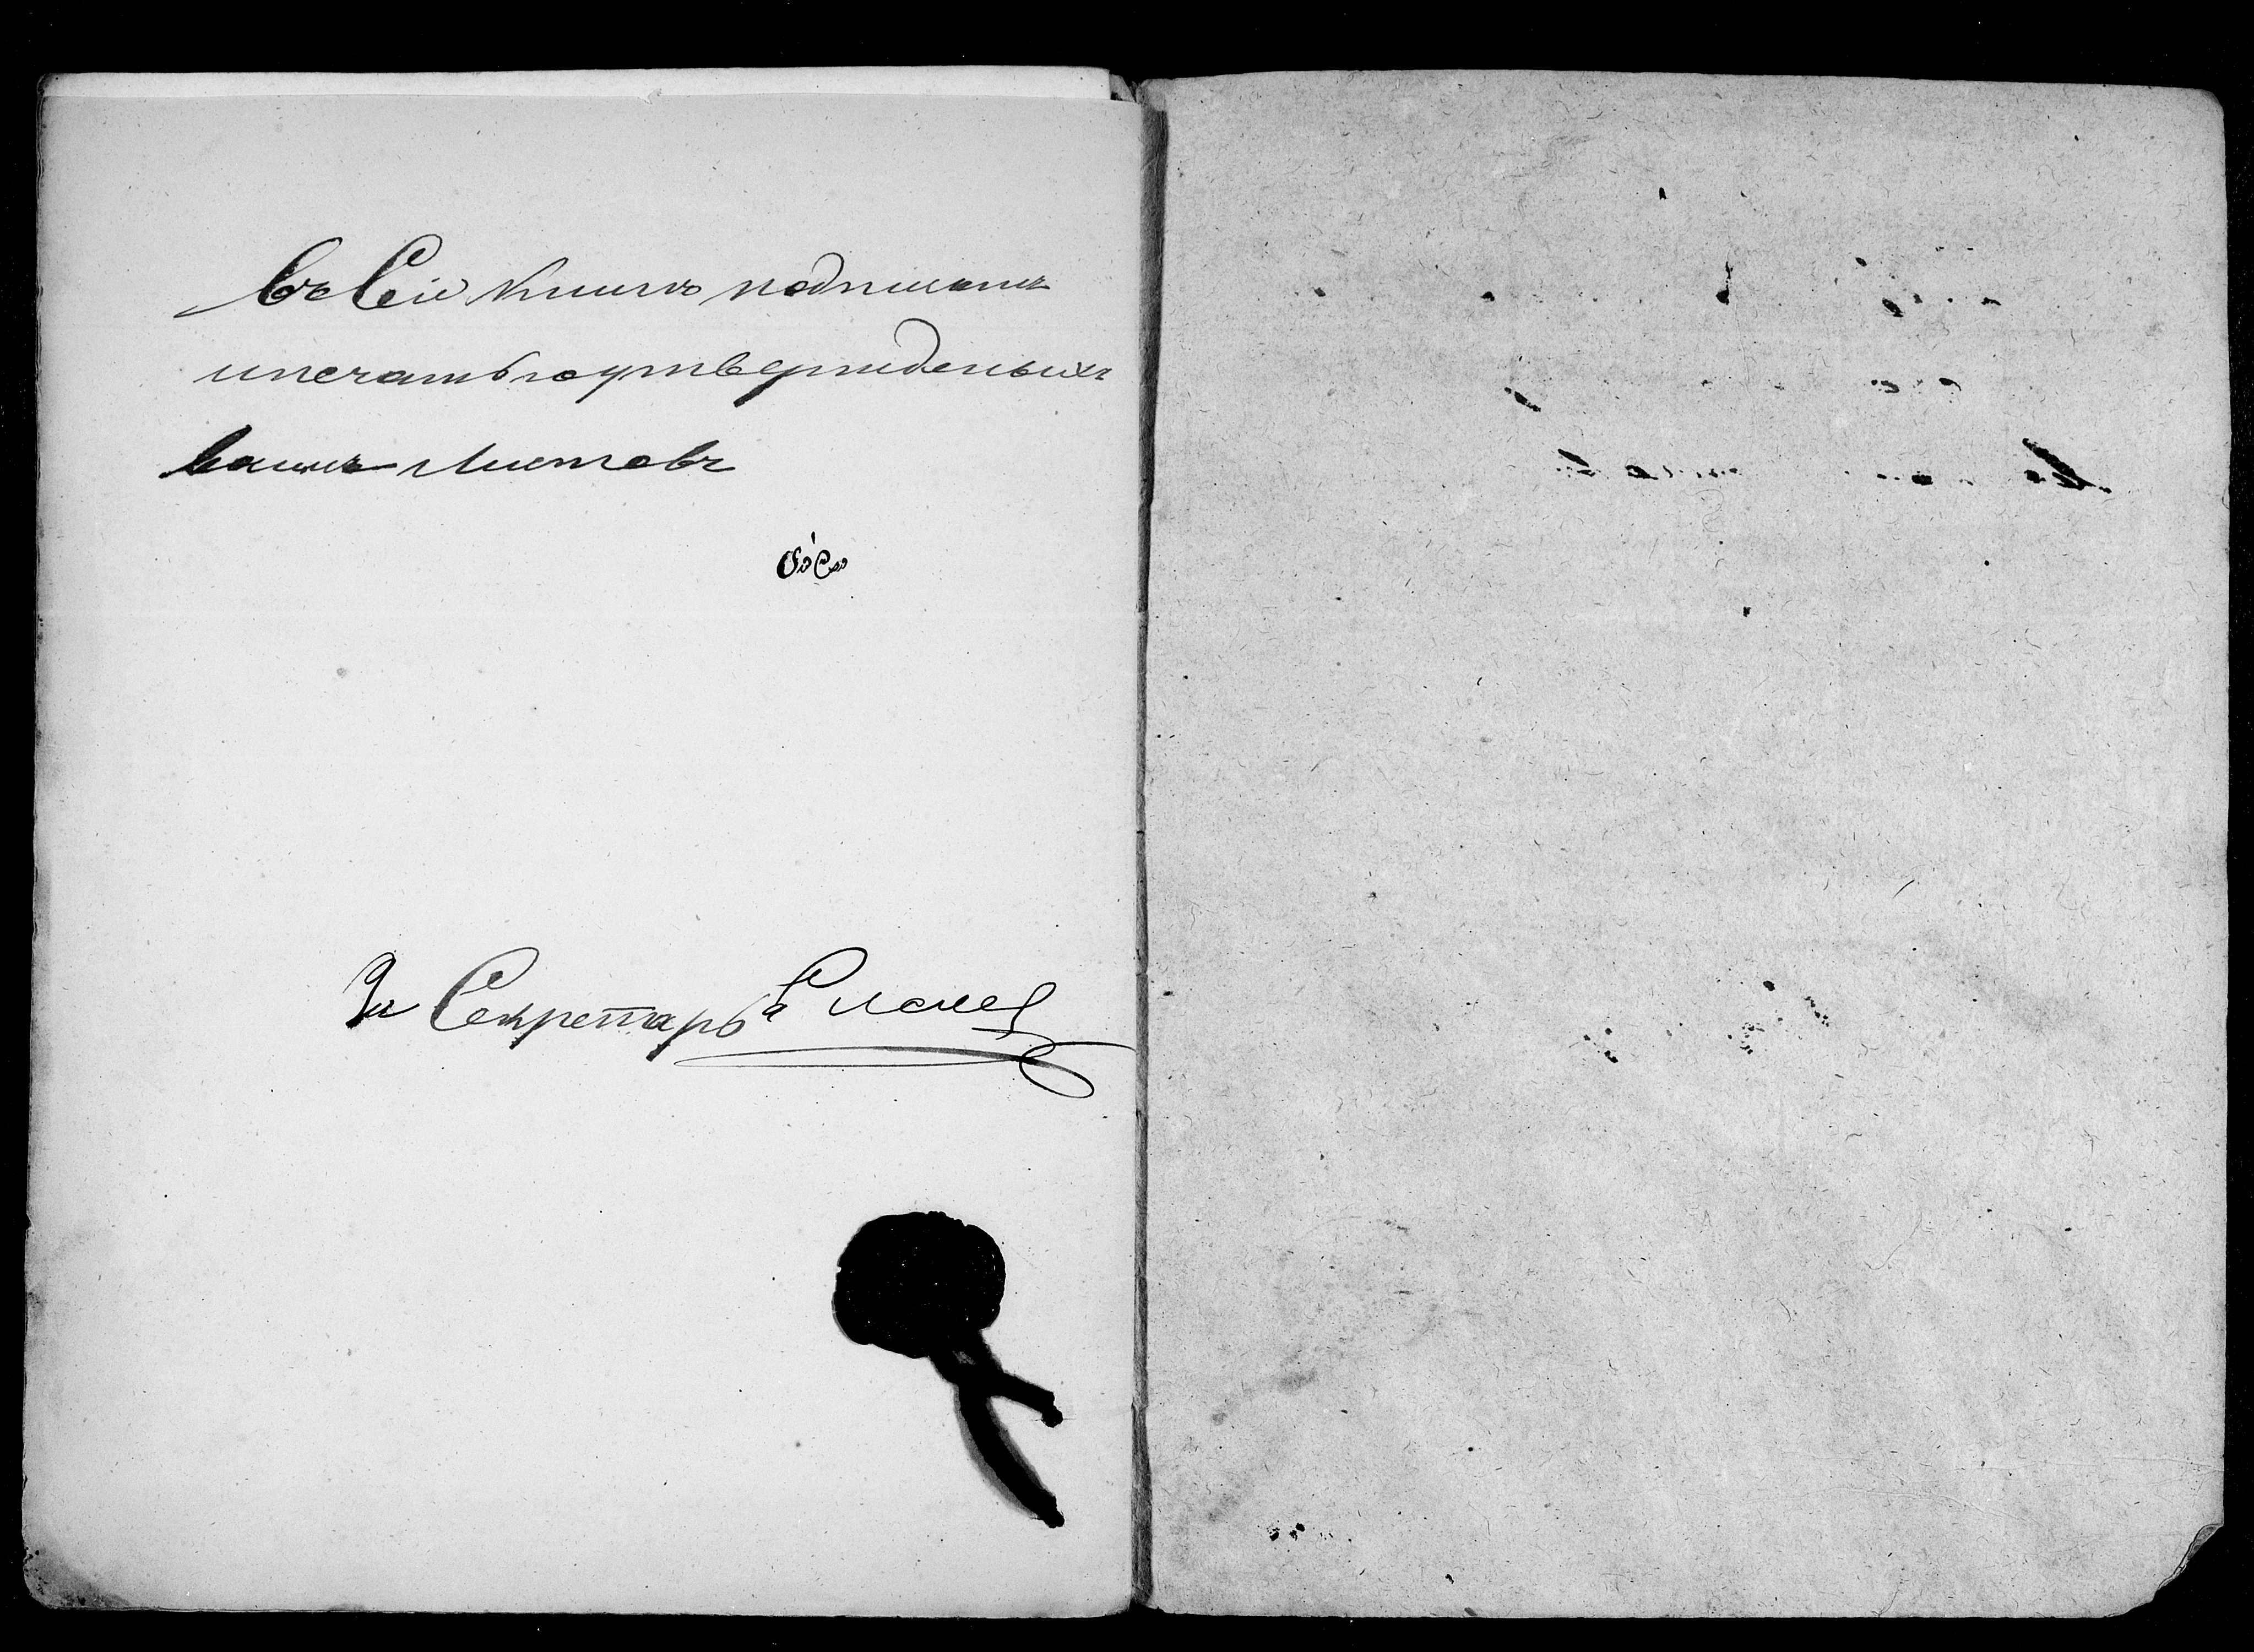 Въ сей книгѣ подписаны
и печатью утвержденыхъ
восемь листовъ
За Секретарь